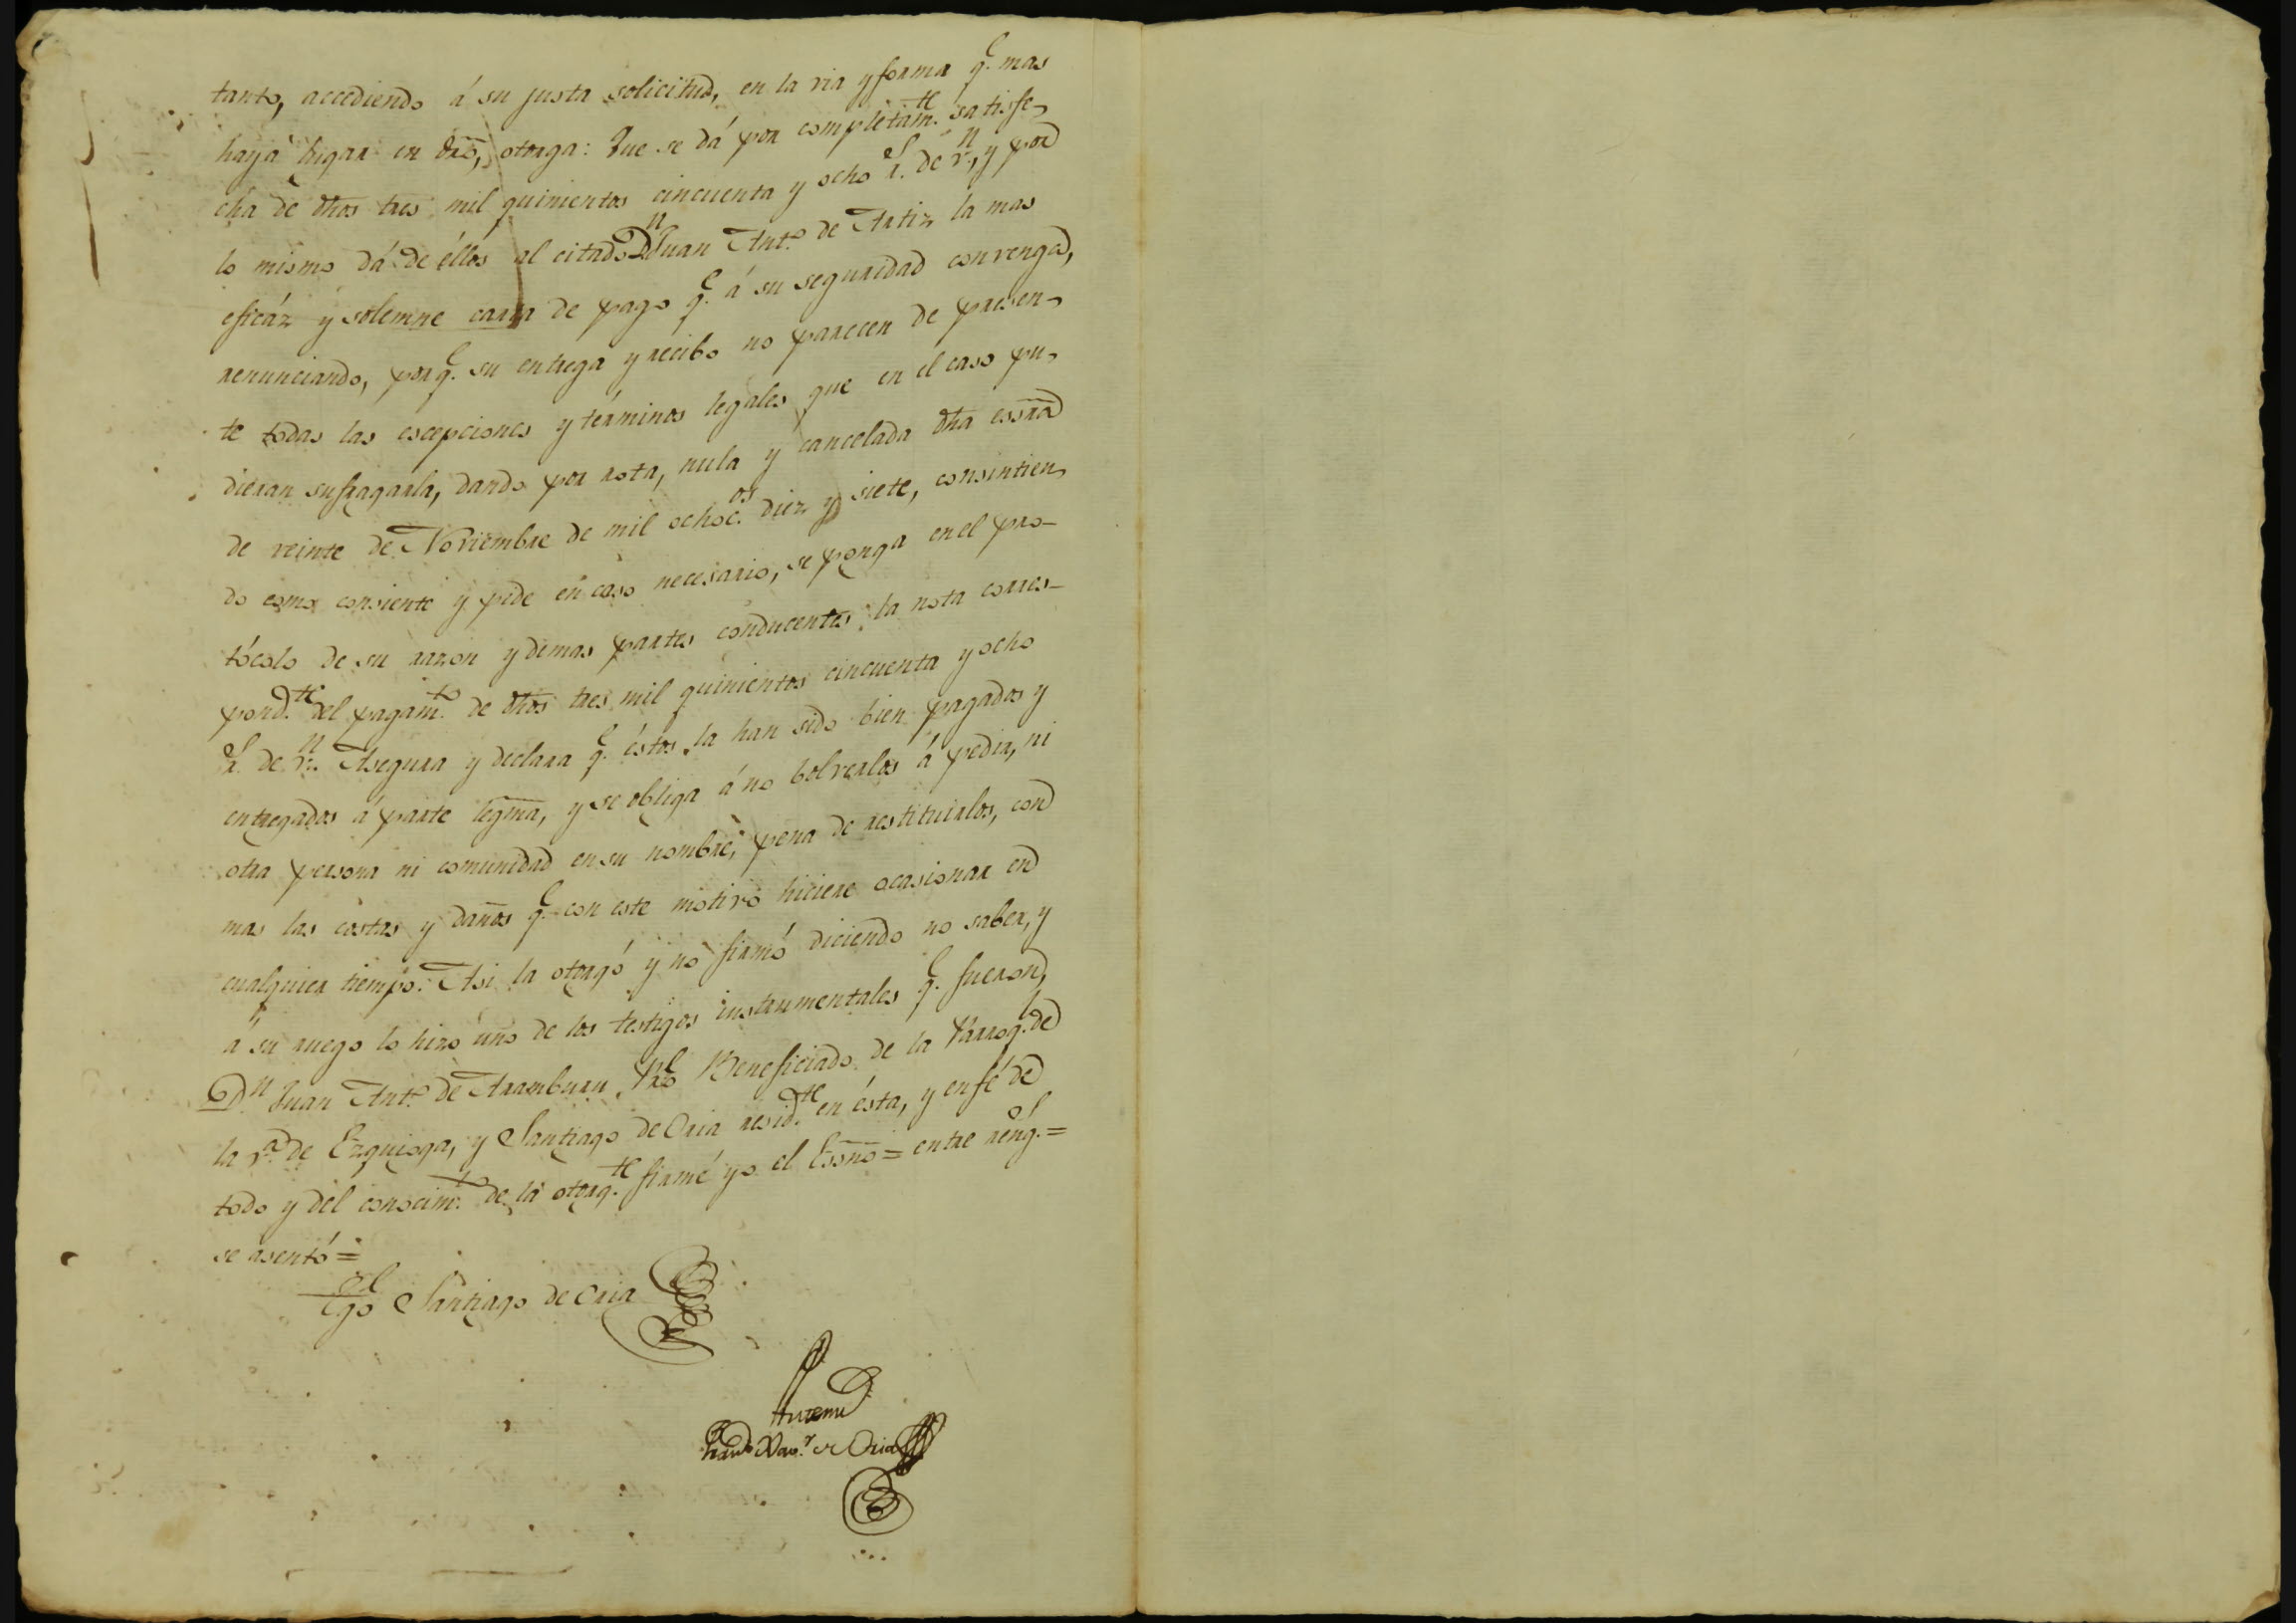 tanto, accediendo á su justa solicitud, en la via y forma q.e mas
haya lugar en dro, otorga: Que se dá por completam.te satisfe-
cha de dhos tres mil quinientos cincuenta y ocho r.s de v.n, y por
lo mismo dá de éllos al citado D.n Juan Ant.o de Artiz la mas
eficáz y solemne carta de pago q.e á su seguridad convenga,
renunciando, porq.e su entrega y recibo no parecen de presen-
te todas las escepciones y términos legales que en el caso pu-
dieran sufragarla, dando por rota, nula y cancelada dha essra
de veinte de Noviembre de mil ochoc.os diez y siete, consintien-
do como consiente y pide en caso necesario, se ponga en el pro-
tócolo de su razon y demas partes conducentes la nota corres-
pond.te del pagam.to de dhos tres mil quinientos cincuenta y ocho
r.s de v.n Asegura y declara q.e éstos la han sido bien pagados y
entregados á parte legma, y se obliga á no bolverlos á pedir, ni
otra persona ni comunidad en su nombre, pena de restituirlos, con
mas las costas y daños q.e con este motivo hiciere ocasionar en
cualquier tiempo. Asi la otorgó y no firmó diciendo no saber, y
á su ruego lo hizo uno de los testigos instrumentales q.e fueron,
D.n Juan Ant.o de Aramburu, Pro Beneficiado de la Parroq.l de
la v.a de Ezquioga, y Santiago de Oria resid.te en ésta, y en fé de
todo y del conocim.to de la otorg.te firmé yo el Essno = entre reng.s =
se asentó =
Tgo Santiago de Oria
Antemi
de Oria